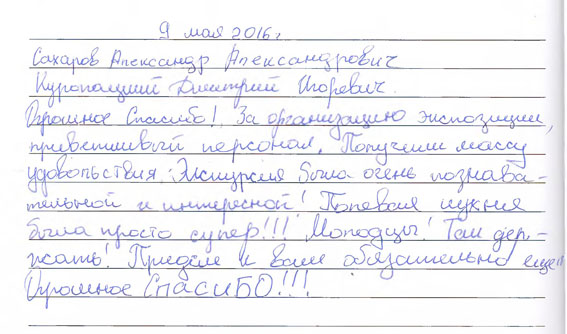 9 мая 2016г
Сахаров Александр Александрович
Куропацкий Дмитрий Игоревич.
Огромное Спасибо! За организацию экспозиции,
приветливый персонал. Получили массу
удовольствия. Экскурсия была очень познава-
тельной и интересной! Полевая кухня
была просто супер!!! Молодцы! Так дер-
жать! Придем к вам обязательно еще!!
Огромное СпасиБО!!!